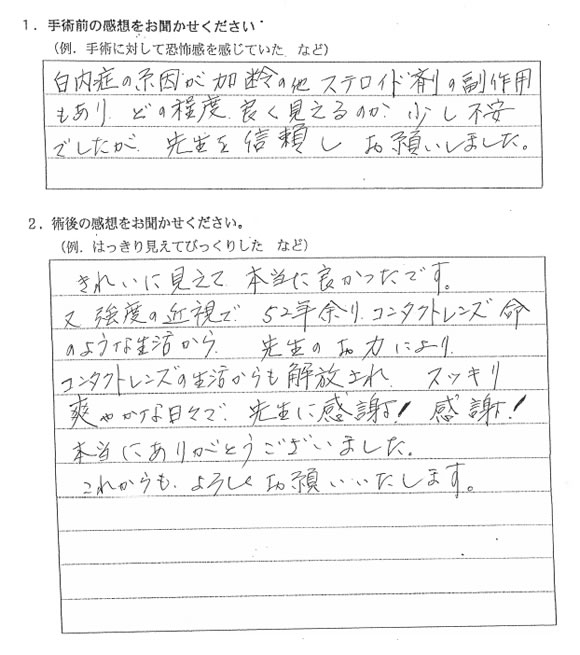 1．手術前の感想をお聞かせください
（例．手術に対して恐怖感を感じていた　など）
白内症の原因が加齢の他ステロイド剤の副作用
もあり、どの程度、良く見えるのか、少し不安
でしたが、先生を信頼しお願いしました。
2．術後の感想をお聞かせください。
（例．はっきり見えてびっくりした　など）
きれいに見えて、本当に良かったです。
又強度の近視で、52年余り、コンタクトレンズ命
のような生活から、先生のお力により、
コンタクトレンズの生活からも解放され、スッキリ
爽やかな日々で、先生に感謝！感謝！
本当にありがとうございました。
これからも、よろしくお願いいたします。